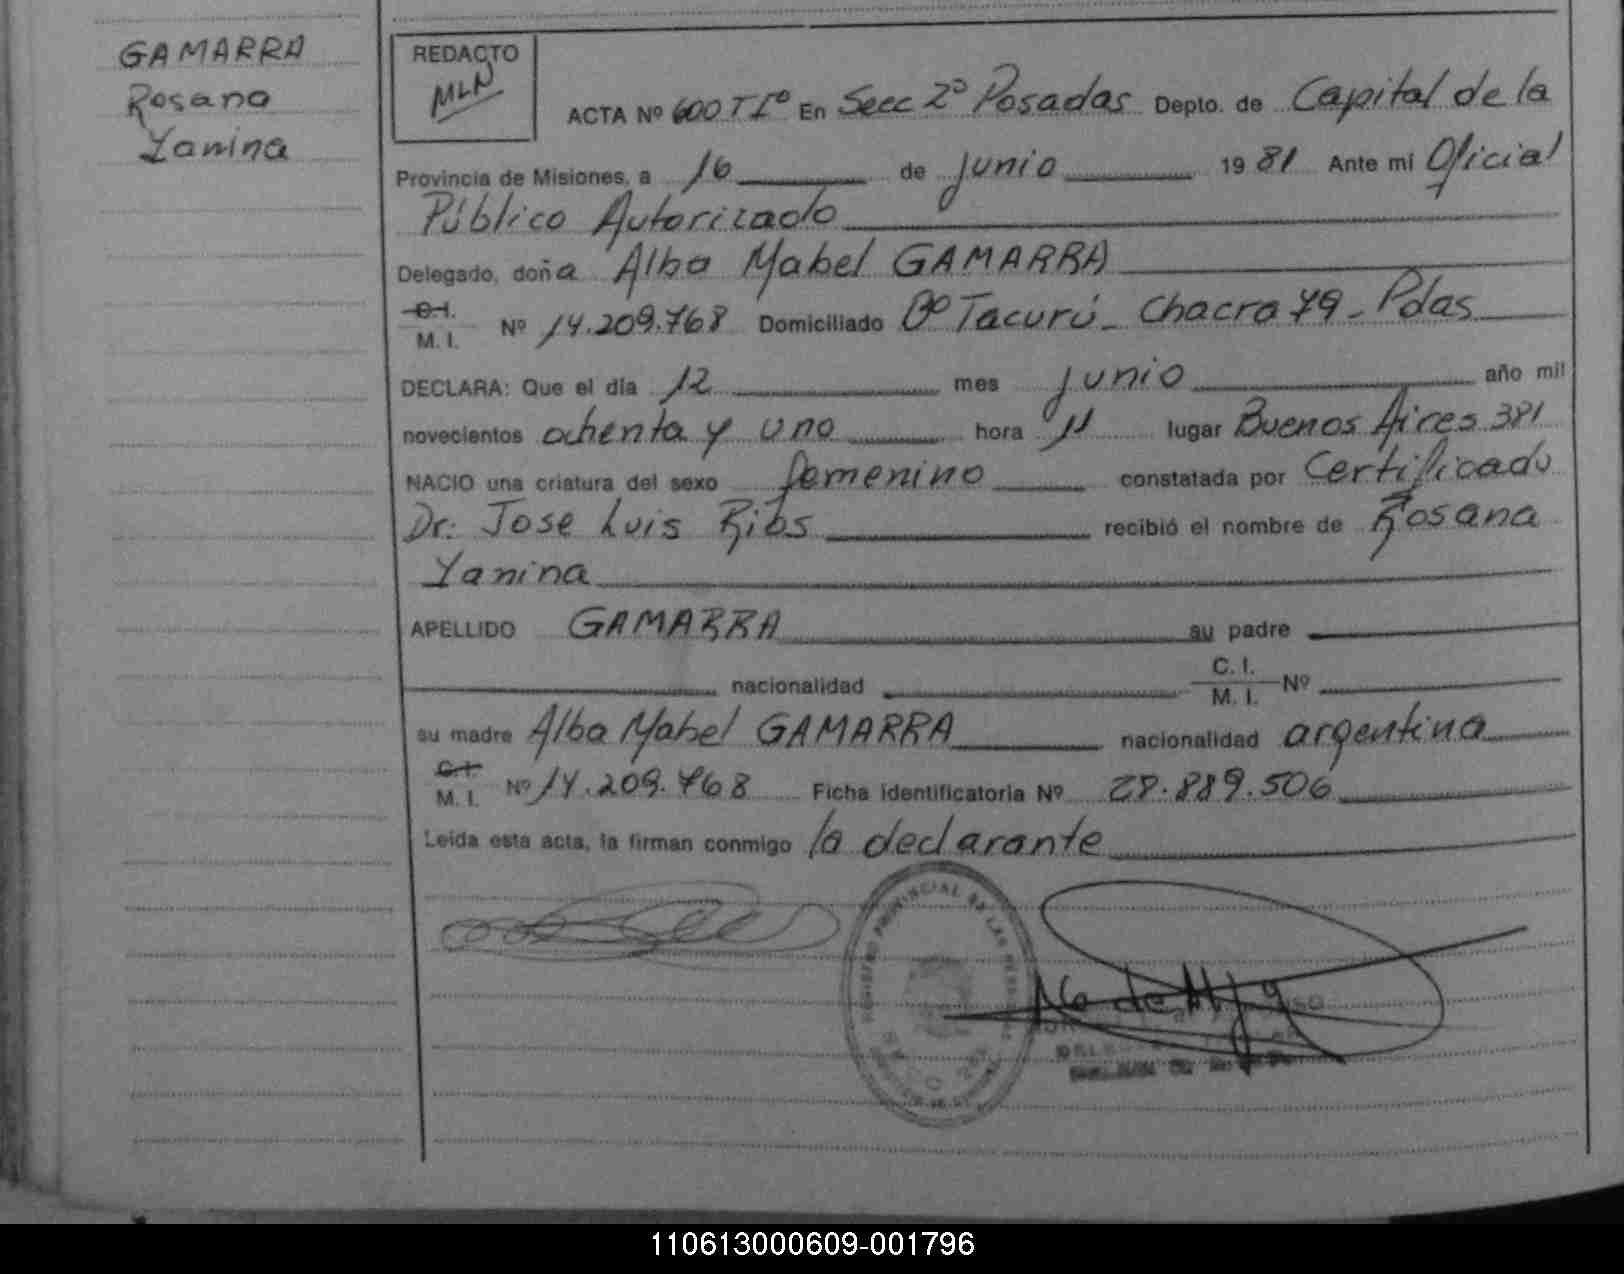 GAMARRA
Rosana
Yanina
REDACTO
MLN
ACTA Nº 600 T Iº En Secc 2º Posadas Depto. de Capital de la
Provincia de Misiones, a 16 de junio 1981 Ante mi Oficial
Público Autorizado
Delegado, doña Alba Mabel GAMARRA
C.I.
M. I. Nº 14.209.768 Domiciliado Bº Tacurú - Chacra 79 - Pdas
DECLARA: Que el día 12 mes junio año mil
novecientos ochenta y uno hora 11 lugar Buenos Aires 381
NACIO una criatura del sexo femenino constatada por Certificado
Dr: Jose Luis Rios recibió el nombre de Rosana
Yanina
APELLIDO GAMARRA su padre
nacionalidad C. I.
M. I. Nº
su madre Alba Mabel GAMARRA nacionalidad argentina
C.I.
M. I. Nº 14.209.768 Ficha identificatoria Nº 28.889.506
Leída esta acta, la firman conmigo la declarante
REGISTRO PROVINCIAL DE LAS PERSONAS
110613000609-001796